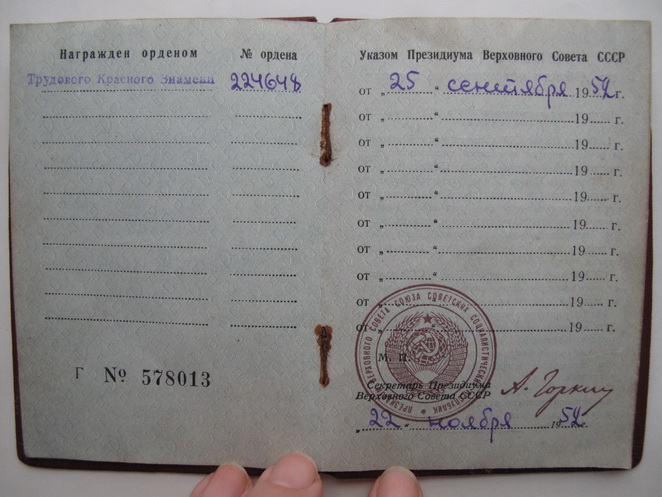 Награжден орденом № ордена
Трудового Красного Знамени 224648
Г № 578013
Указом Президиума Верховного Совета СССР
от „ 25 “ сентября 1952 г.
от „ “ 19 г.
от „ “ 19 г.
от „ “ 19 г.
от „ “ 19 г.
от „ “ 19 г.
от „ “ 19 г.
от „ “ 19 г.
от „ “ 19 г.
от „ “ 19 г.
М. П.
Секретарь Президиума
Верховного Совета СССР А. Горкин
„ 22 “ ноября 1952 г.